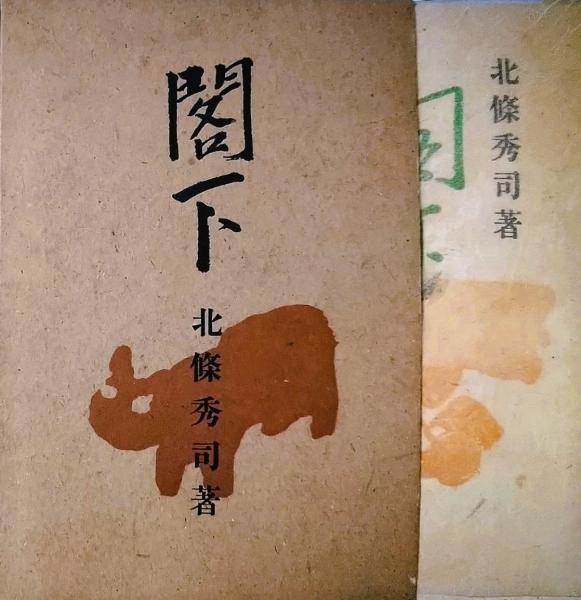 閣下
北條秀司著
北條秀司著
閣下